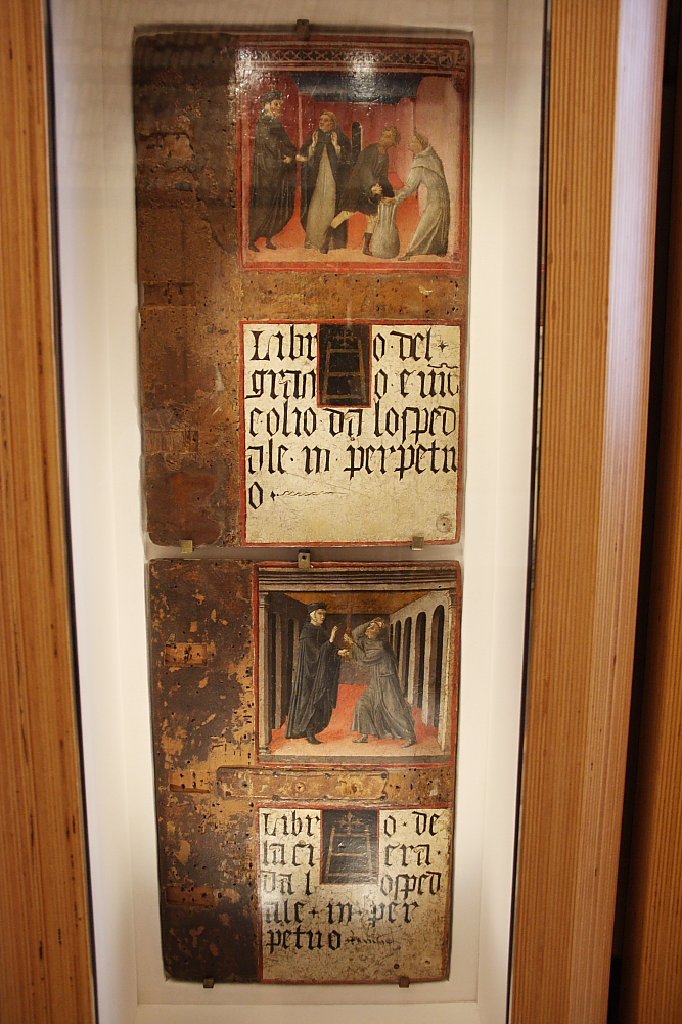 Libro · del ·
grano e vīc̄
e olio da losped
ale · in · perpetu
o ·
Libro · de
la cera ·
da losped
ale · in · per
petuo ·